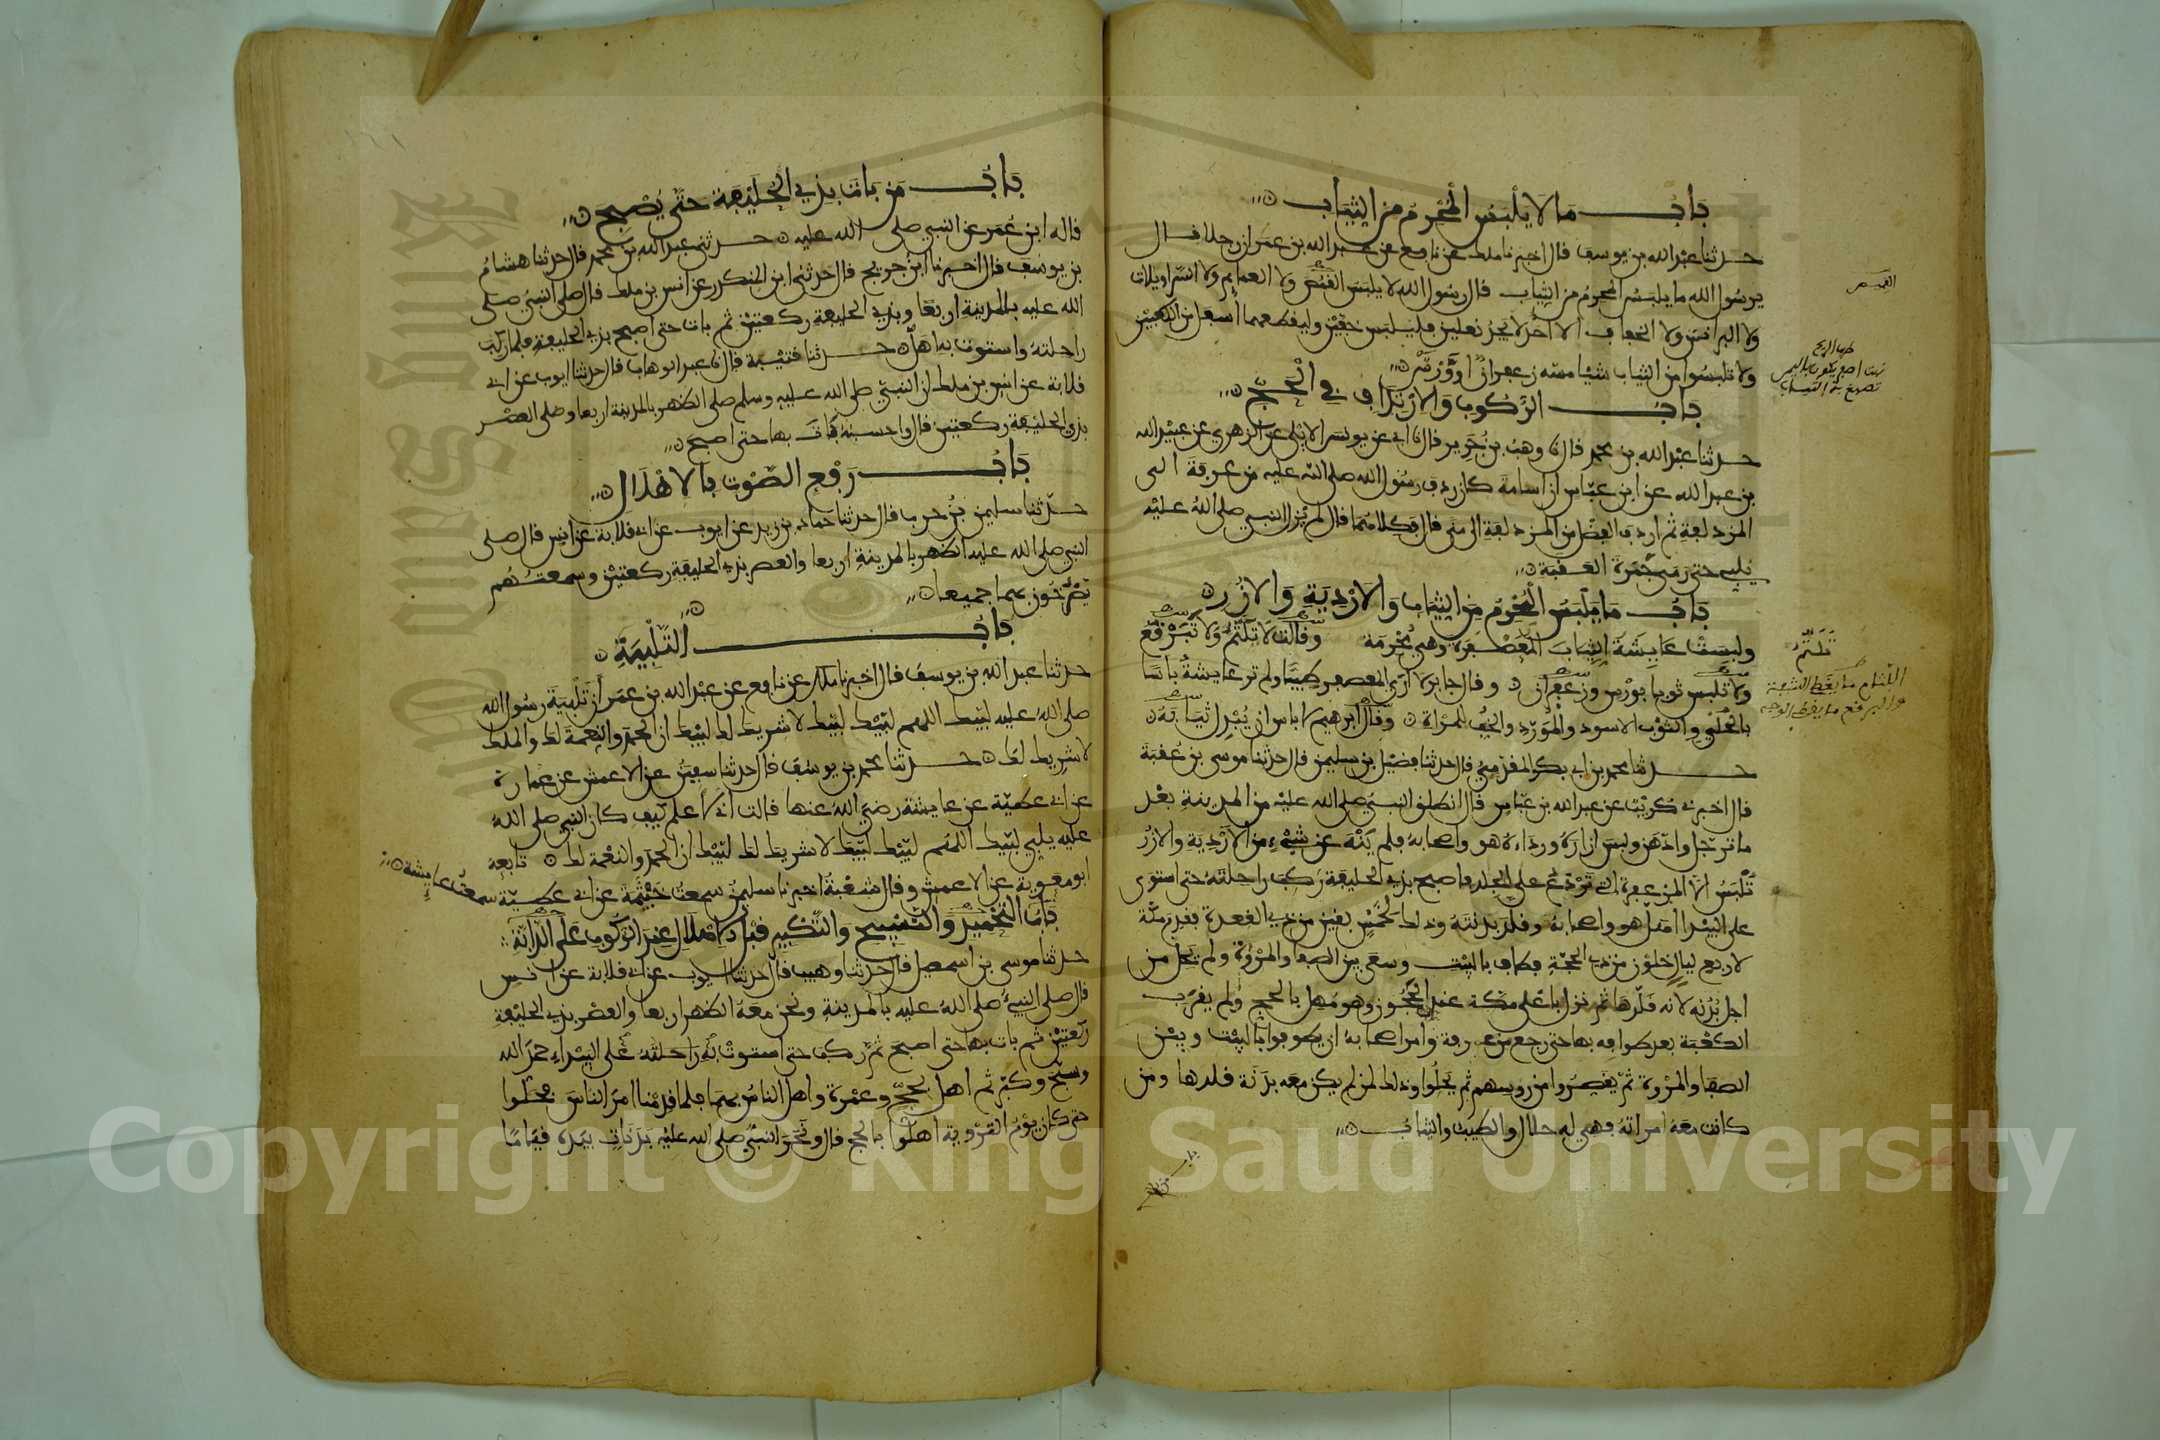 باب ما لا يلبس المحرم من الثياب
حدثنا عبد الله بن يوسف قال اخبرنا ملك عن نافع عن عبد الله بن عمر ان رجلا قال
يرسول الله ما يلبس المحرم من الثياب قال رسول الله لا يلبس القمص ولا العمايم ولا السراويلات
ولا البرانس ولا الخفاف الا احد لا يجد نعلين فليلبس خفين وليقطعهما اسفل من الكعبين
ولا تلبسوا من الثياب شيا مسه زعفران او ورس
باب الركوب والارتداف في الحج
حدثنا عبد الله بن محمد قال نا وهب بن جرير قال نا ابي عن يونس الايلي عن الزهري عن عبيد الله
بن عبد الله عن ابن عباس ان اسامة كان ردف رسول الله صلى الله عليه من عرفة الى
المزدلفة ثم اردف الفضل من المزدلفة الى منى قال فكلاهما قال لم يزل النبي صلى الله عليه
يلبي حتى رمى جمرة العقبة
باب ما يلبس المحرم من الثياب والاردية والازر
ولبست عايشة الثياب المعصفرة وهي محرمة وقالت لا تلثم ولا تبرقع
ولا تلبس ثوبا بورس وزعفران وقال جابر لا ارى المعصفر طيبا ولم تر عايشة باسا
بالحلي والثوب الاسود والمورد والخف للمراة وقال ابرهيم لا باس ان يبدل ثيابه
حدثنا محمد بن ابي بكر المقدمي قال حدثنا فضيل بن سليمن قال حدثنا موسى بن عقبة
قال اخبرني كريب عن عبد الله بن عباس قال انطلق النبي صلى الله عليه من المدينة بعد
ما ترجل وادهن ولبس ازاره ورداءه هو واصحابه فلم ينه عن شيء من الاردية والازر
تلبس الا المزعفرة التي تردع على الجلد فاصبح بذي الحليفة ركب راحلته حتى استوى
على البيداء اهل هو واصحابه وقلد بدنته وذلك لخمس بقين من ذي القعدة فقدم مكة
لاربع ليال خلون من ذي الحجة فطاف بالبيت وسعى بين الصفا والمروة ولم يحل من
اجل بدنه لانه قلدها ثم نزل باعلى مكة عند الحجون وهو مهل بالحج ولم يقرب
الكعبة بعد طوافه بها حتى رجع من عرفة وامر اصحابه ان يطوفوا بالبيت وبين
الصفا والمروة ثم يقصروا من روسهم ثم يحلوا وذلك لمن لم يكن معه بدنة قلدها ومن
كانت معه امراته فهي له حلال والطيب والثياب
القميص
تلثم
اللثام ما يغطى الشفة
والبرقع ما يغطى الوجه
باب من بات بذي الحليفة حتى يصبح
قاله ابن عمر عن النبي صلى الله عليه حدثني عبد الله بن محمد قال حدثنا هشام
بن يوسف قال اخبرنا ابن جريج قال حدثني ابن المنكدر عن انس بن ملك قال صلى النبي صلى
الله عليه بالمدينة اربعا وبذي الحليفة ركعتين ثم بات حتى اصبح بذي الحليفة فلما ركب
راحلته واستوت به اهل حدثنا قتيبة قال نا عبد الوهاب قال حدثنا ايوب عن ابي
قلابة عن انس بن ملك ان النبي صلى الله عليه وسلم صلى الظهر بالمدينة اربعا وصلى العصر
بذي الحليفة ركعتين قال واحسبه بات بها حتى اصبح
باب رفع الصوت بالاهلال
حدثنا سليمن بن حرب قال حدثنا حماد بن زيد عن ايوب عن ابي قلابة عن انس قال صلى
النبي صلى الله عليه الظهر بالمدينة اربعا والعصر بذي الحليفة ركعتين وسمعتهم
يصرخون بهما جميعا
باب التلبية
حدثنا عبد الله بن يوسف قال اخبرنا ملك عن نافع عن عبد الله بن عمر ان تلبية رسول الله
صلى الله عليه لبيك اللهم لبيك لبيك لا شريك لك لبيك ان الحمد والنعمة لك والملك
لا شريك لك حدثنا محمد بن يوسف قال حدثنا سفين عن الاعمش عن عمارة
عن ابي عطية عن عايشة رضي الله عنها قالت اني لاعلم كيف كان النبي صلى الله
عليه يلبي لبيك اللهم لبيك لبيك لا شريك لك لبيك ان الحمد والنعمة لك تابعه
ابو معوية عن الاعمش وقال شعبة اخبرنا سليمن سمعت خيثمة عن ابي عطية سمعت عايشة
باب التحميد والتسبيح والتكبير قبل الاهلال عند الركوب على الدابة
حدثنا موسى بن اسمعيل قال حدثنا وهيب قال حدثنا ايوب عن ابي قلابة عن انس
قال صلى النبي صلى الله عليه بالمدينة ونحن معه الظهر اربعا والعصر بذي الحليفة
ركعتين ثم بات بها حتى اصبح ثم ركب حتى استوت به راحلته على البيداء حمد الله
وسبح وكبر ثم اهل بحج وعمرة واهل الناس بهما فلما قدمنا امر الناس فحلوا
حتى كان يوم التروية اهلوا بالحج قال ونحر النبي صلى الله عليه بدنات بيده قياما
King Saud University
Copyright © King Saud University